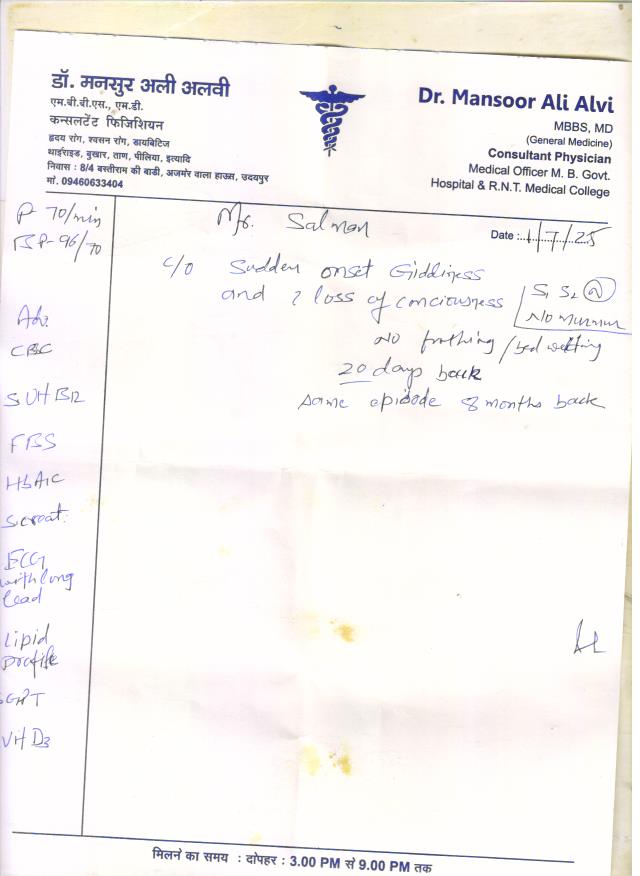 डॉ. मनसुर अली अलवी
एम.बी.बी.एस., एम.डी.
कन्सलटेंट फिजिशियन
हृदय रोग, श्वसन रोग, डायबिटिज
थाईराइड, बुखार, ताण, पीलिया, इत्यादि
निवास : 8/4 बस्तीराम की बाडी, अजमेर वाला हाउस, उदयपुर
मो. 09460633404
Dr. Mansoor Ali Alvi
MBBS, MD
(General Medicine)
Consultant Physician
Medical Officer M. B. Govt.
Hospital & R.N.T. Medical College
P 70/min
BP- 96/70
Mr. Salman
Date : 1/7/25
C/O Sudden onset Giddiness
and ? loss of conciousness
S1 S2 (N)
No murmur
No frothing / bed wetting
20 days back
same episode 8 months back
Adv.
CBC
S. Vit B12
FBS
HbA1C
S creat.
ECG
with long
lead
Lipid
profile
SGPT
Vit D3
मिलने का समय : दोपहर : 3.00 PM से 9.00 PM तक